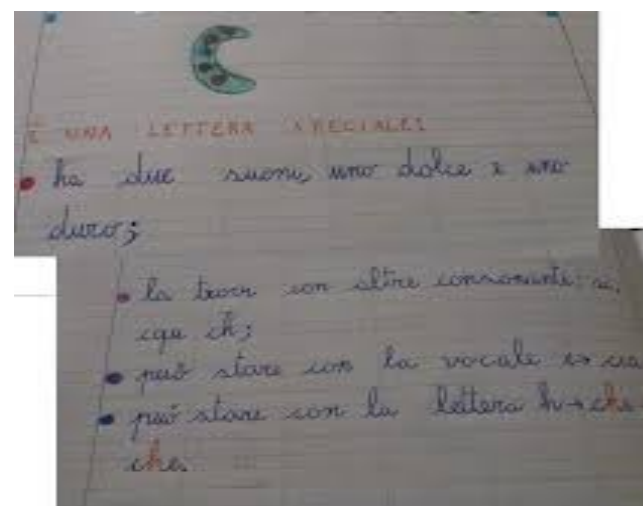 C
È UNA LETTERA SPECIALE!
ha due suoni, uno dolce e uno
duro;
la trovi con altre consonanti:
cqu ch;
può stare con la vocale i→
può stare con la lettera h→
che.